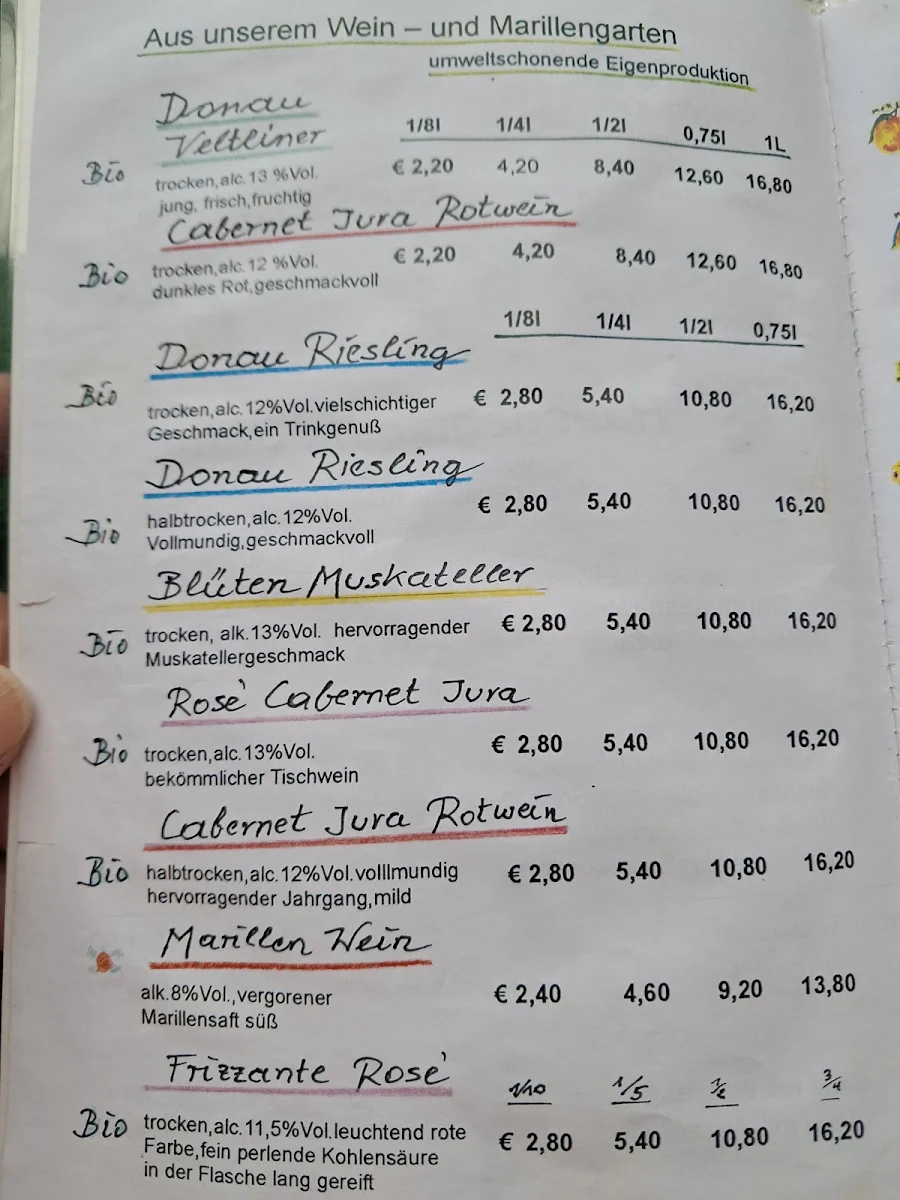 Aus unserem Wein – und Marillengarten
umweltschonende Eigenproduktion
Donau
Veltliner 1/8l 1/4l 1/2l 0,75l 1L
Bio trocken,alc.13 %Vol. € 2,20 4,20 8,40 12,60 16,80
jung, frisch,fruchtig
Cabernet Jura Rotwein
Bio trocken,alc.12 %Vol. € 2,20 4,20 8,40 12,60 16,80
dunkles Rot,geschmackvoll
1/8l 1/4l 1/2l 0,75l
Donau Riesling
Bio trocken,alc.12%Vol.vielschichtiger € 2,80 5,40 10,80 16,20
Geschmack,ein Trinkgenuß
Donau Riesling
Bio halbtrocken,alc.12%Vol. € 2,80 5,40 10,80 16,20
Vollmundig,geschmackvoll
Blüten Muskateller
Bio trocken, alk.13%Vol. hervorragender € 2,80 5,40 10,80 16,20
Muskatellergeschmack
Rosè Cabernet Jura
Bio trocken,alc.13%Vol. € 2,80 5,40 10,80 16,20
bekömmlicher Tischwein
Cabernet Jura Rotwein
Bio halbtrocken,alc.12%Vol.volllmundig € 2,80 5,40 10,80 16,20
hervorragender Jahrgang,mild
Marillen Wein
alk.8%Vol.,vergorener € 2,40 4,60 9,20 13,80
Marillensaft süß
Frizzante Rosè 1/10 1/5 1/2 3/4
Bio trocken,alc.11,5%Vol.leuchtend rote € 2,80 5,40 10,80 16,20
Farbe,fein perlende Kohlensäure
in der Flasche lang gereift